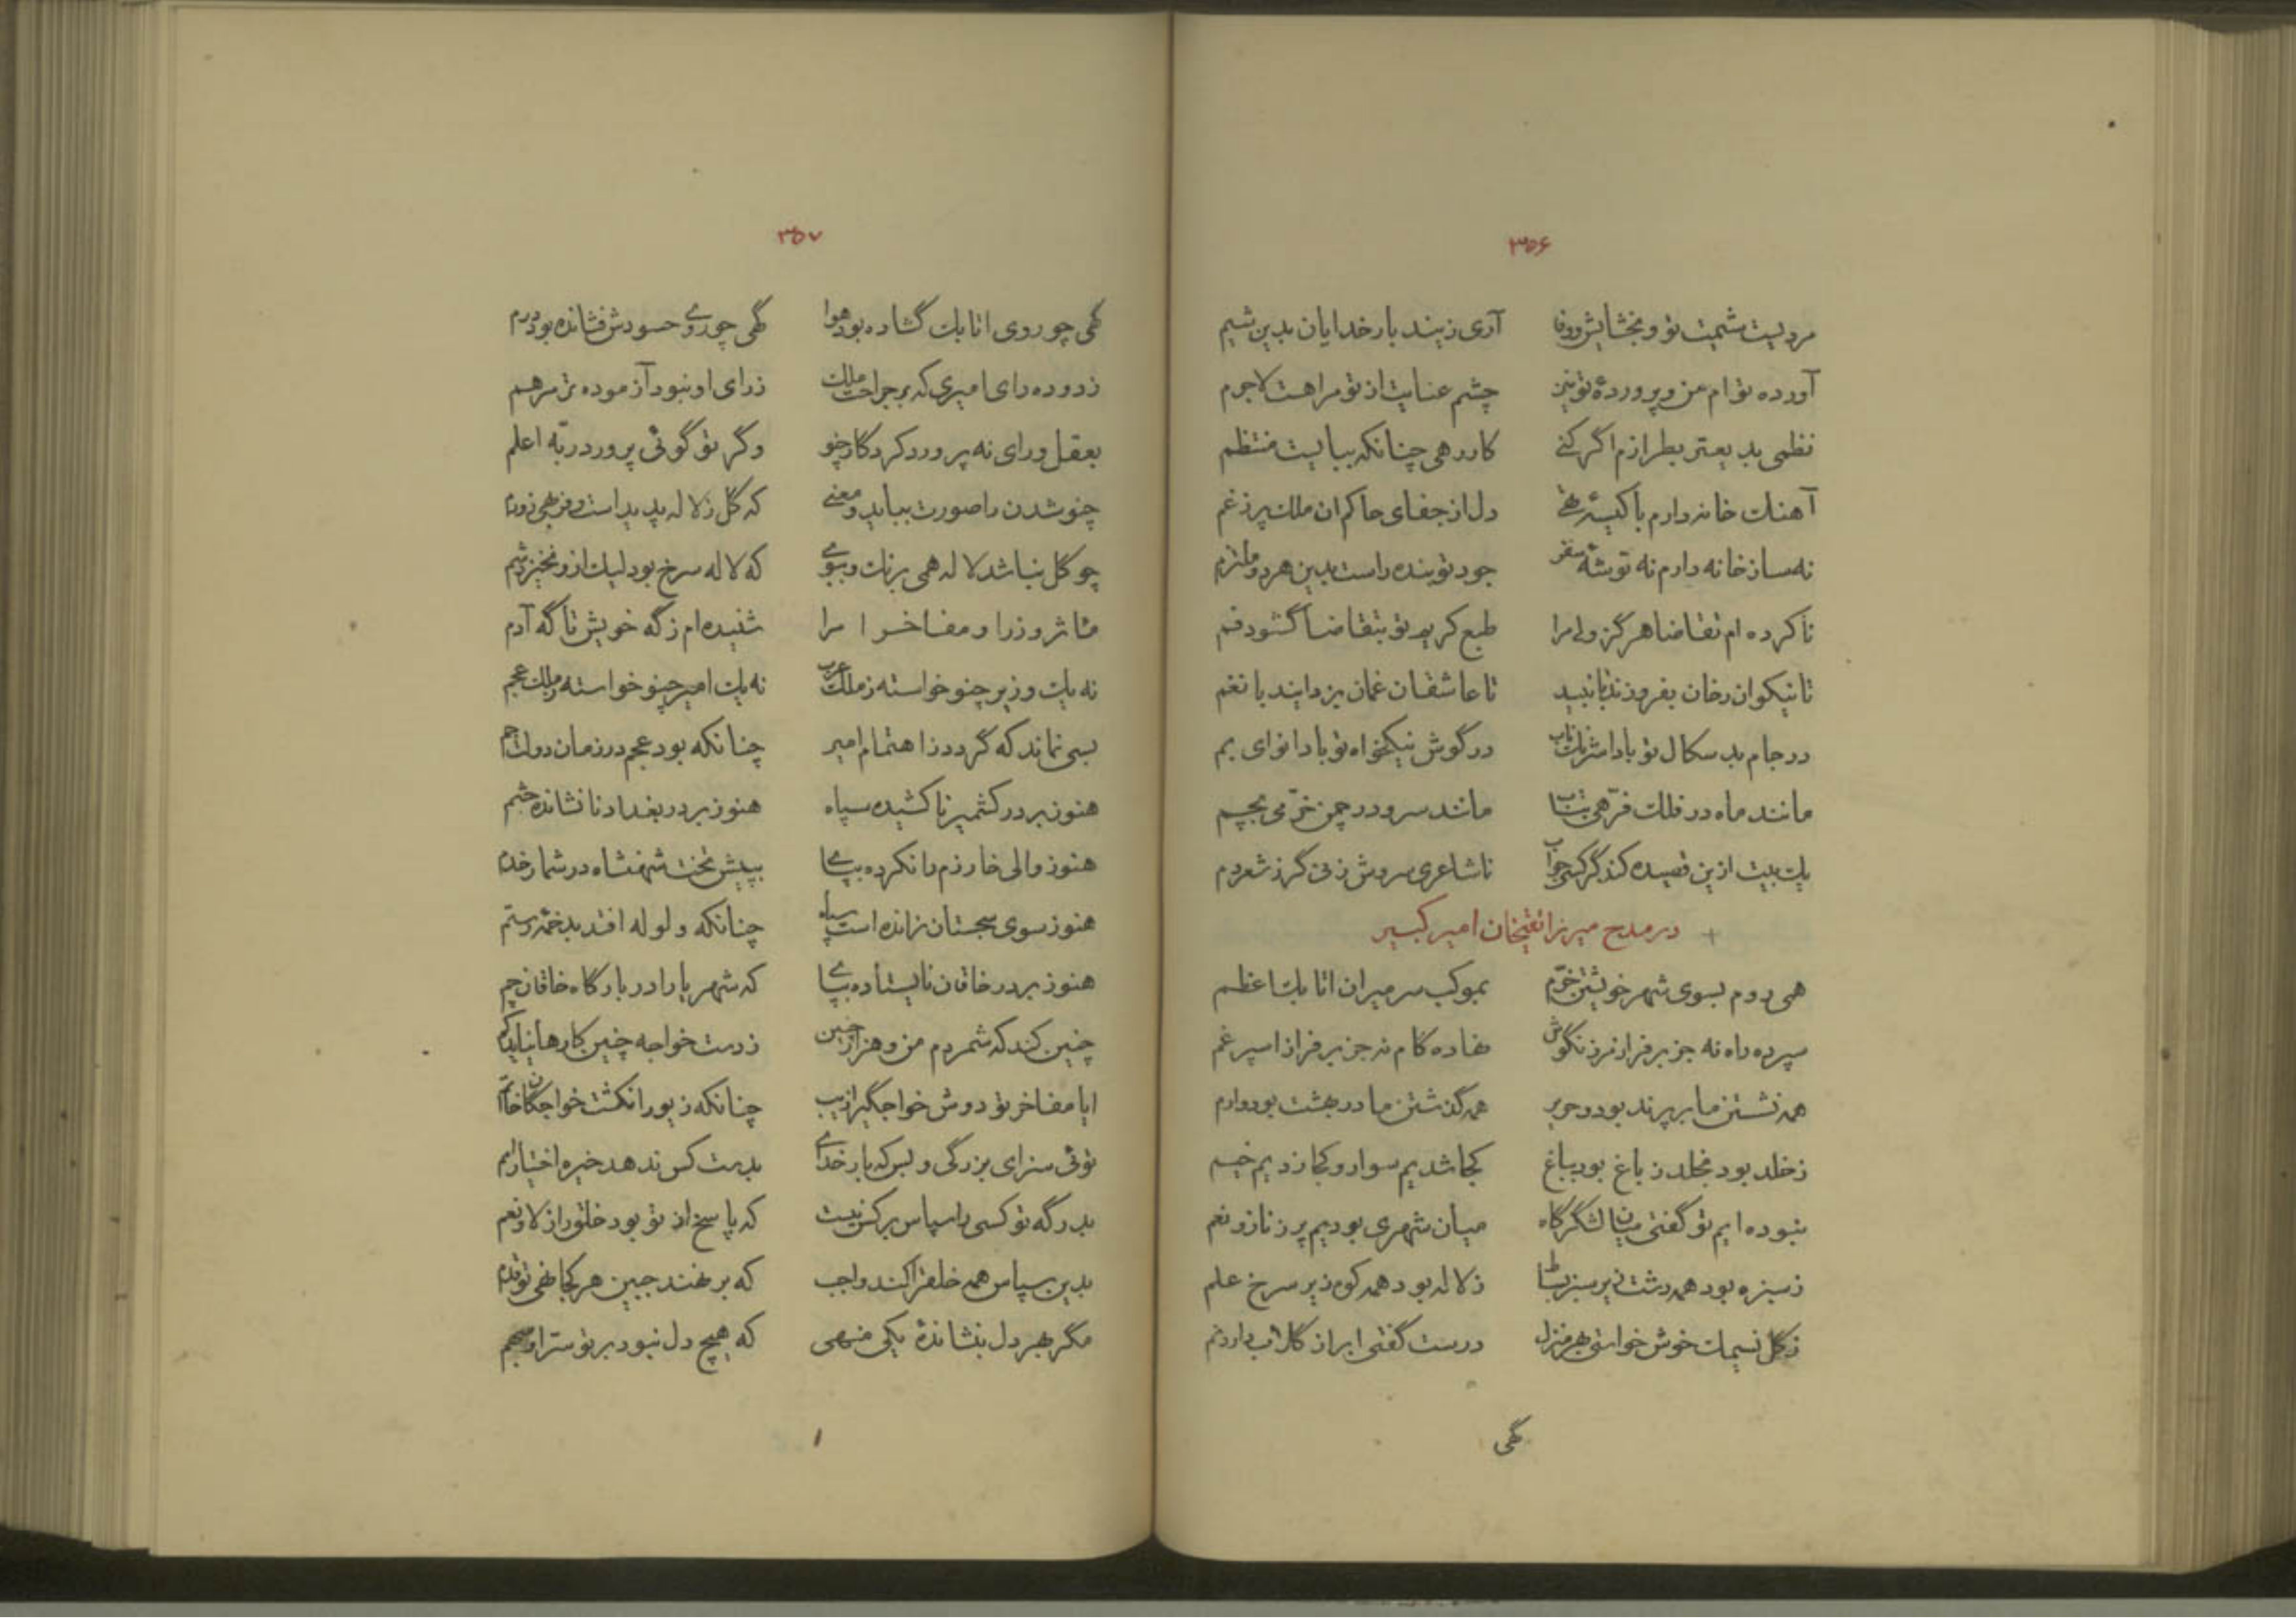 ۳۵۶
مردیست شمیت تو و بخشایش و وفا آری زیند بار خدایان بدین شیم
آورده توام من و پرورده توئین چشم عنایت از تو مرا هست لاجرم
نظمی بدیعتر بطرازم اگر کنی کار رهی چنانکه ببایست منتظم
آهنك خانه دارم با کیسه تهی دل از جفای حاکم ان ملك پر ز غم
نه ساز خانه دارم نه توشه سفر جود تو بنده راست بدین هر دو ملتزم
ناکرده ام تقاضا هرگز ولی مرا طبع کریم تو بتقاضا گشود فم
تا نیکوان رخان بفروزند با نبید تا عاشقان غمان بزدایند با نغم
در جام بد سکال تو بادا شرنك ناب در گوش نیکخواه تو بادا نوای بم
مانند ماه در فلك فرّهی بتاب مانند سرو در چمن خرّمی بچم
یك بیت ازین قصیده کند گر کسی جواب ناشاعری سروش زنی گر ز شعر دم
+ در مدح میرزا تقیخان امیر کبیر
همی روم بسوی شهر خویشتن خرّم بموکب سر میران اتابك اعظم
سپرده راه نه جز بر فراز فرز نکوش نهاده کام نه جز بر فراز اسپرغم
همه نشستن ما بر پرند بود و حریر همه گذشتن ما در بهشت بود و ارم
ز خلد بود بخلد و ز باغ بود بباغ کجا شدیم سوار و کجا زدیم خیم
نبوده ایم تو گفتی میان لشگرگاه میان شهری بودیم پر ز ناز و نعم
ز سبزه بود همه دشت زیر سبز بساط ز لاله بود همه کوه زیر سرخ علم
ز گل نسیمك خوش خواستی بهر منزل درست گفتی ابر از گلاب دارد نم
گهی
۳۵۷
گهی چو روی اتابك گشاده بود هوا گهی چو روی حسودش فشانده بود درم
زدوده رای امیری که بر جراحت ملك ز رای او نبود آزموده تر مرهم
بعقل و رای نه پرورد کردگار چنو وگر تو گوئی پرورد ربّه اعلم
چنو شدن را صورت بباید و معنی که گل ز لاله پدید است و فربهی ز ورم
چو گل نباشد لاله همی برنك و ببوی که لاله سرخ بود لیك ازو نخیزد شم
مآثر وزرا و مفاخر امرا شنیده ام ز گه خویش تا گه آدم
نه یك وزیر چنو خواسته ز ملك عرب نه یك امیر چنو خواسته ز ملك عجم
بسی نماند که گردد ز اهتمام امیر چنانکه بود عجم در زمان دولت جم
هنوز بر در کشمیر ناکشیده سپاه هنوز بر در بغداد نانشانده حشم
هنوز والی خارزم را نکرده بپای بپیش تخت شهنشاه در شمار خدم
هنوز سوی سجستان نرانده است سپاه چنانکه ولوله افتد بدخمه رستم
هنوز بر در خاقان نایستاده بپای که شهریارا در بارگاه خاقان چم
چنین کند که شمردم من و هزار چنین ز دست خواجه چنین کارها نیاید کم
ایا مفاخر تو دوش خواجگیرا زیب چنانکه زیور انکشت خواجگان خاتم
توئی سزای بزرگی و بس که بار خدای بدست کس ندهد خیره اختیار امم
بدرگه تو کسی را سپاس بر کس نیست که پاسخ از تو بود خلق را ز لا و نعم
بدین سپاس همه خلق را کند واجب که بر نهند جبین هر کجا نهی تو قدم
مگر بهر دل بنشاندۀ یکی منهی که هیچ دل نبود بر تو سرّ او مبهم